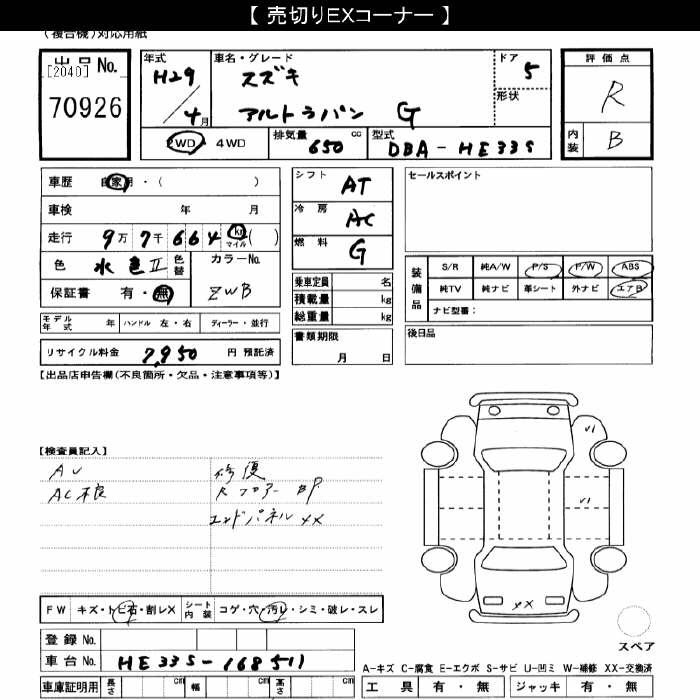 【 売切りEXコーナー 】
(複合機)対応用紙
出品 No.
[2040]
70926
年式
H29
4月
車名・グレード
スズキ
アルトラパン G
ドア
5
形状
評価点
R
内装
B
2WD・4WD
排気量 650 cc
型式
DBA-HE33S
車歴 自家用・( )
車検 年 月
走行 9万7千664 km マイル ( )
色 水色II 色替
カラーNo.
ZWB
保証書 有・無
モデル年式 年 ハンドル 左・右 ディーラー・並行
リサイクル料金 7,950 円 預託済
シフト AT
冷房 AC
燃料 G
乗車定員 名
積載量 kg
総重量 kg
書類期限
月 日
セールスポイント
装備品
S/R 純A/W P/S P/W ABS
純TV 純ナビ 革シート 外ナビ エアB
ナビ型番:
後日品
【出品店申告欄(不良箇所・欠品・注意事項等)】
【検査員記入】
AU 修復
AC不良 Rフロアー BP
エンドパネル XX
FW キズ・トビ石・割レX
シート内装 コゲ・穴・汚レ・シミ・破レ・スレ
登録 No.
車台 No. HE33S-168511
車庫証明用 長さ cm 幅 cm 高さ cm
U1
U1
XX
スペア
A-キズ C-腐食 E-エクボ S-サビ U-凹ミ W-補修 XX-交換済
工具 有・無 ジャッキ 有・無